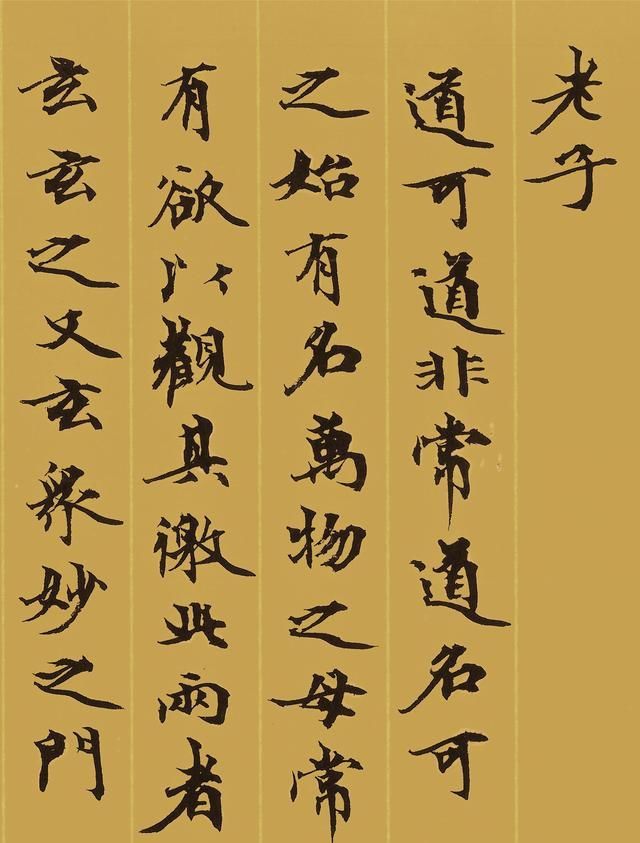 老子
道可道非常道名可
之始有名萬物之母常
有欲以觀其徼此兩者
玄玄之又玄眾妙之門